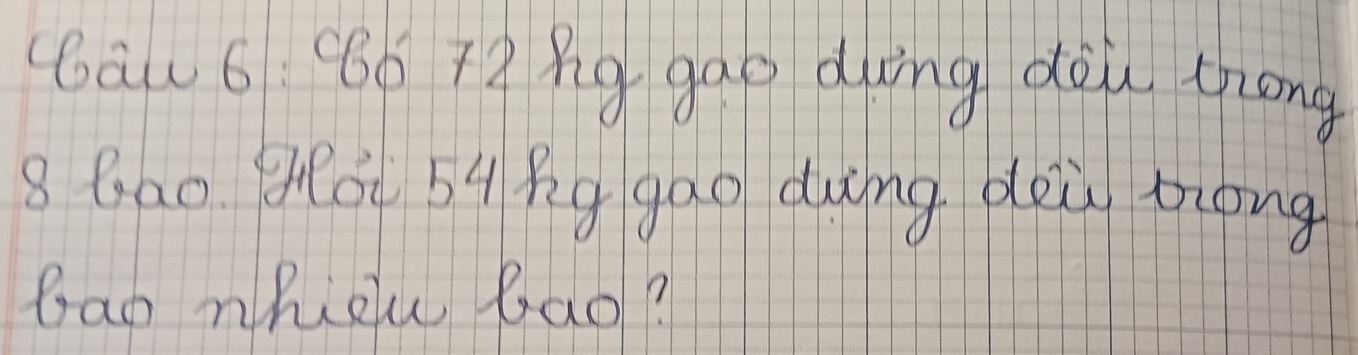 Câu 6: Có 72 kg gạo đựng đều trong
8 bao. Hỏi 54 kg gạo đựng đều trong
bao nhiêu bao?